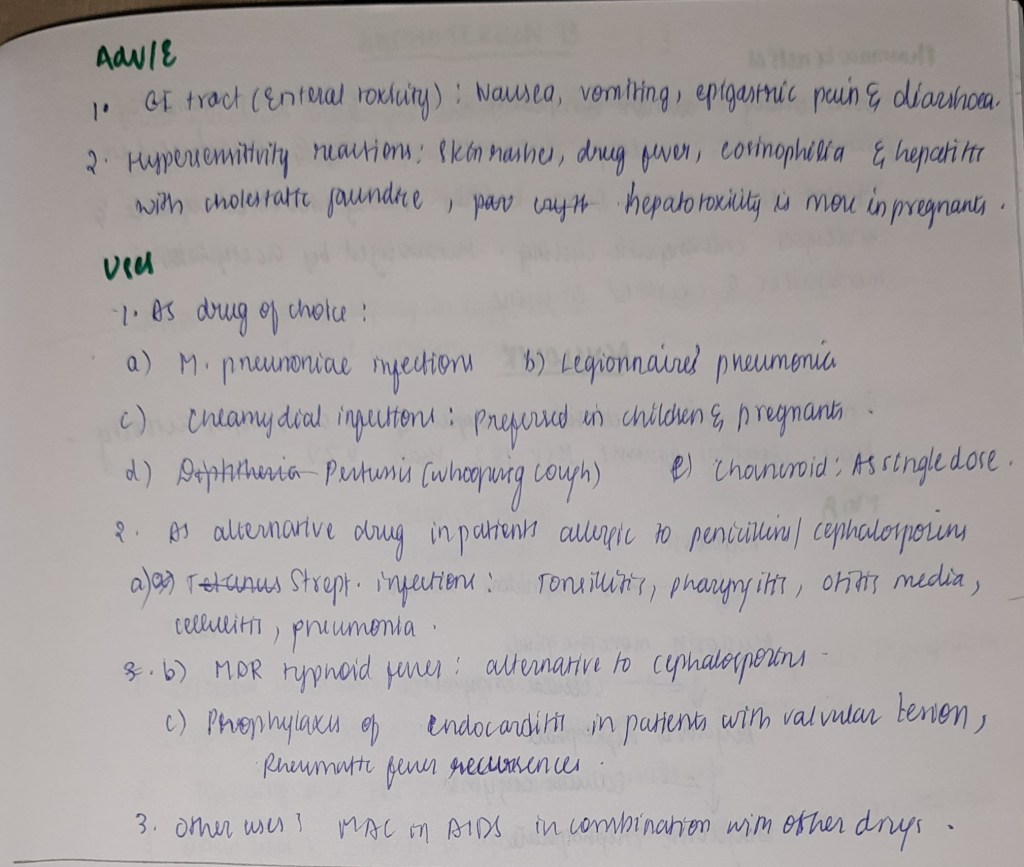 Adv/E
1. GI tract (Enteral toxicity) : Nausea, vomiting, epigastric pain & diarrhoea.
2. Hypersensitivity reactions: Skin rashes, drug fever, eosinophilia & hepatitis
with cholestatic jaundice, hepatotoxicity is more in pregnants.
Uses
1. As drug of choice :
a) M. pneumoniae infections b) Legionnaires' pneumonia
c) Chlamydial infections : preferred in children & pregnants.
d) Diphtheria Pertussis (whooping cough) e) Chancroid : As single dose.
2. As alternative drug in patients allergic to penicillins/ cephalosporins
a) Tetanus Strept. infections : Tonsillitis, pharyngitis, otitis media,
cellulitis, pneumonia.
b) MDR typhoid fever : alternative to cephalosporins
c) Prophylaxis of endocarditis in patients with valvular lesion,
Rheumatic fever recurrences.
3. Other uses : MAC in AIDS in combination with other drugs.